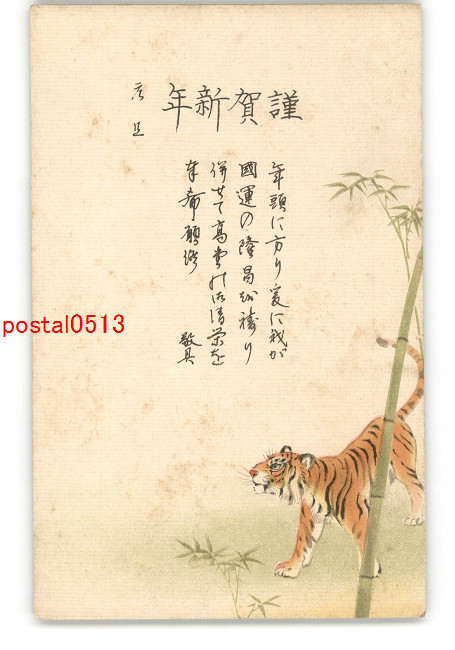 謹賀新年
元旦
年頭に方り爰に我が
國運の隆昌を祷り
併せて高堂の御清栄を
奉希願候
敬具
postal0513